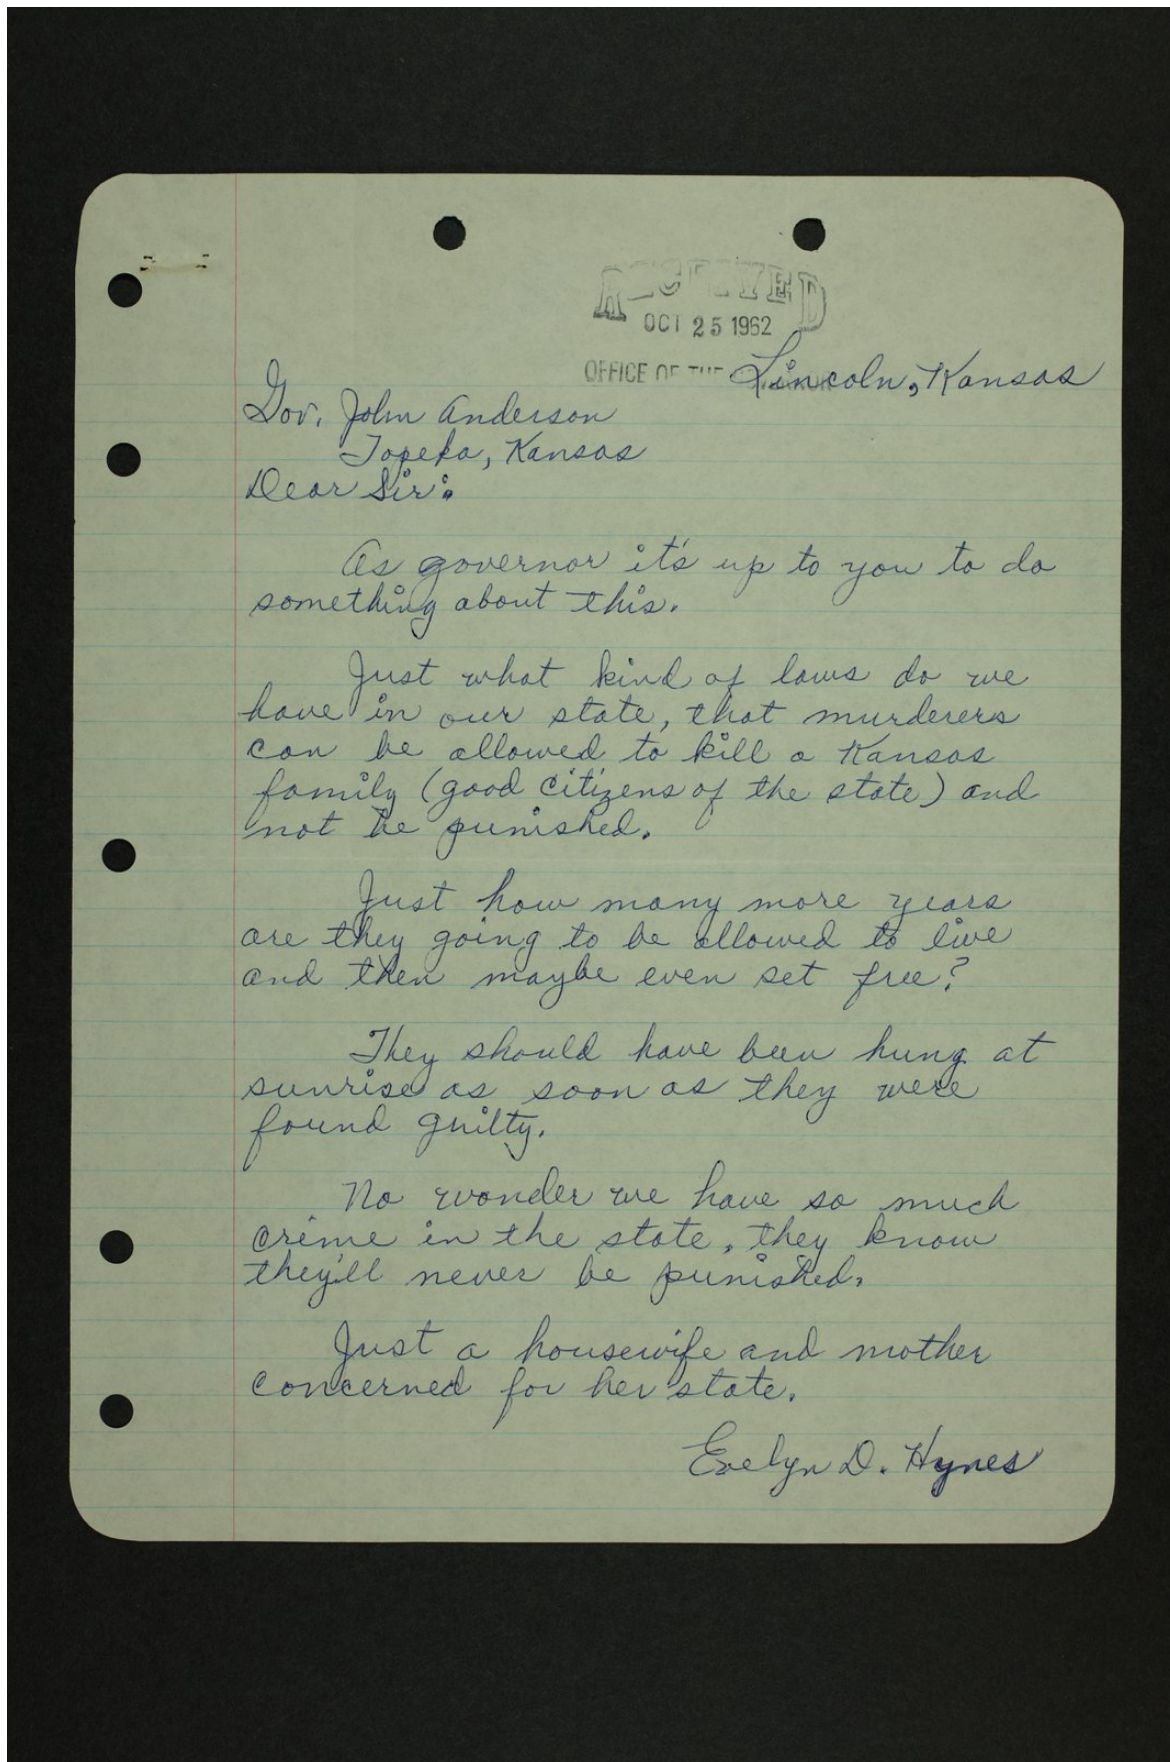 RECEIVED
OCT 25 1962
OFFICE OF THE
Lincoln, Kansas
Gov. John Anderson
Topeka, Kansas
Dear Sir:
As governor it's up to you to do
something about this.
Just what kind of laws do we
have in our state, that murderers
can be allowed to kill a Kansas
family (good citizens of the state) and
not be punished.
Just how many more years
are they going to be allowed to live
and then maybe even set free?
They should have been hung at
sunrise as soon as they were
found guilty.
No wonder we have so much
crime in the state, they know
they'll never be punished.
Just a housewife and mother
concerned for her state.
Evelyn D. Hynes